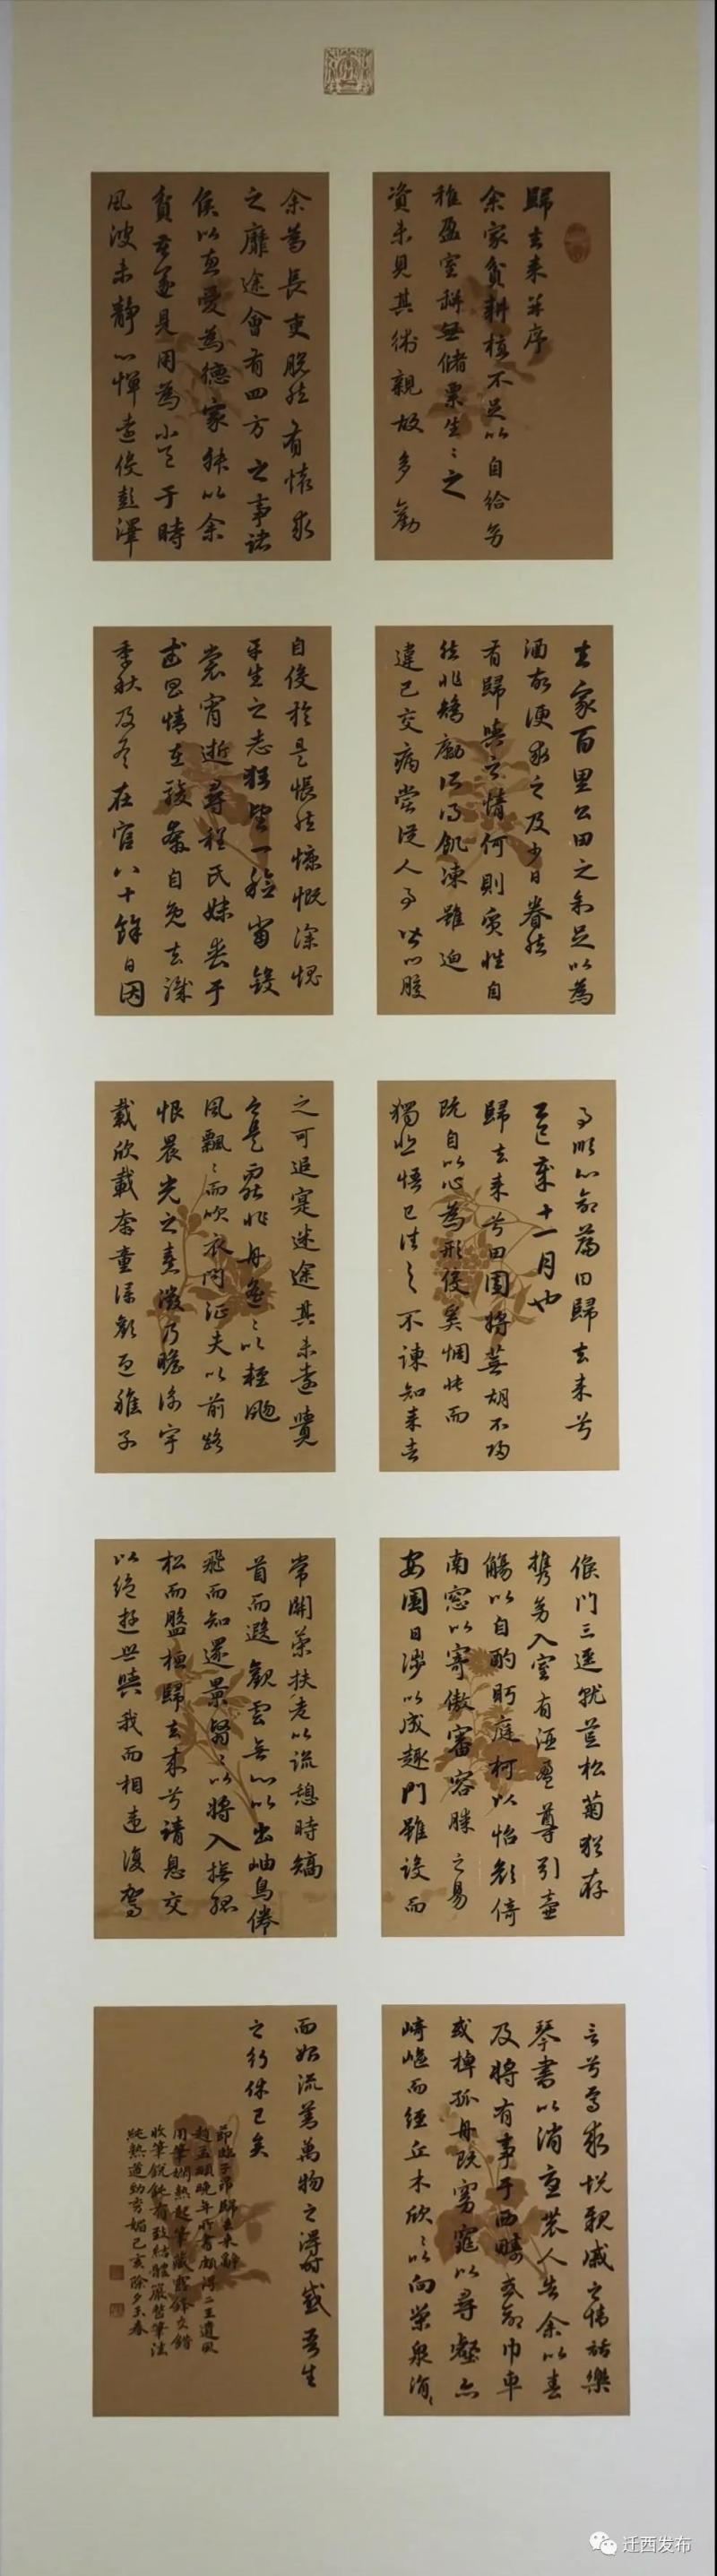 歸去来並序
余家貧耕植不足以自給幼
稚盈室缾無儲粟生〻之
資未見其術親故多勸
余為長吏脫然有懷求
之靡途會有四方之事諸
侯以惠愛為德家叔以余
貧苦遂見用為小邑于時
風波未靜心憚遠役彭澤
去家百里公田之利足以為
酒故便求之及少日眷然
有歸與之情何則質性自
然非矯勵所得飢凍雖迫
違己交病嘗從人事皆口腹
自役於是悵然慷慨深愧
平生之志猶望一稔當斂
裳宵逝尋程氏妹喪于
武昌情在駿奔自免去職
季秋及冬在官八十餘日因
事順心命篇曰歸去来兮
乙巳歲十一月也
歸去来兮田園將蕪胡不歸
既自以心為形役奚惆悵而
獨悲悟已往之不諫知来者
之可追寔迷途其未遠覺
今是而昨非舟遙〻以輕颺
風飄〻而吹衣問征夫以前路
恨晨光之熹微乃瞻衡宇
載欣載奔童僕歡迎稚子
候門三逕就荒松菊猶存
攜幼入室有酒盈尊引壺
觴以自酌眄庭柯以怡顏倚
南窓以寄傲審容膝之易
安園日涉以成趣門雖設而
常開策扶老以流憩時矯
首而遐觀雲無心以出岫鳥倦
飛而知還景翳〻以將入撫孤
松而盤桓歸去来兮請息交
以絕遊世與我而相違復駕
言兮焉求悅親戚之情話樂
琴書以消憂農人告余以春
及將有事于西疇或命巾車
或棹孤舟既窈窕以尋壑亦
崎嶇而經丘木欣〻以向榮泉涓〻
而始流善萬物之得時感吾生
之行休已矣
節臨子昂歸去来辭
趙孟頫晚年所書頗得二王遺風
用筆嫻熟起筆藏露鋒交錯
收筆銳鈍有致結體嚴謹筆法
純熟遒勁秀媚己亥除夕玉春
迁西发布